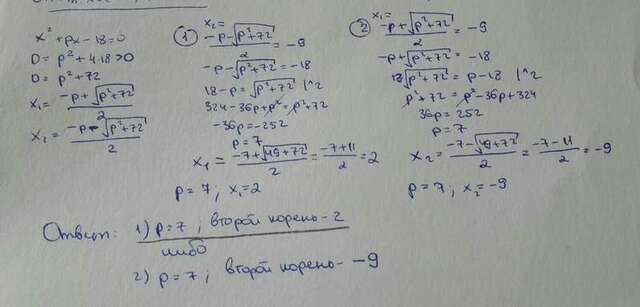 x² + px - 18 = 0
D = p² + 4·18 > 0
D = p² + 72
x₁ = (-p + √(p² + 72))/2
x₂ = (-p - √(p² + 72))/2
① x₂ = (-p - √(p² + 72))/2 = -9
-p - √(p² + 72) = -18
18 - p = √(p² + 72) |^2
324 - 36p + p² = p² + 72
-36p = -252
p = 7
x₁ = (-7 + √(49 + 72))/2 = (-7 + 11)/2 = 2
p = 7; x₁ = 2
② x₁ = (-p + √(p² + 72))/2 = -9
-p + √(p² + 72) = -18
√(p² + 72) = p - 18 |^2
p² + 72 = p² - 36p + 324
36p = 252
p = 7
x₂ = (-7 - √(49 + 72))/2 = (-7 - 11)/2 = -9
p = 7; x₂ = -9
Ответ: 1) p = 7; второй корень - 2
либо
2) p = 7; второй корень - -9